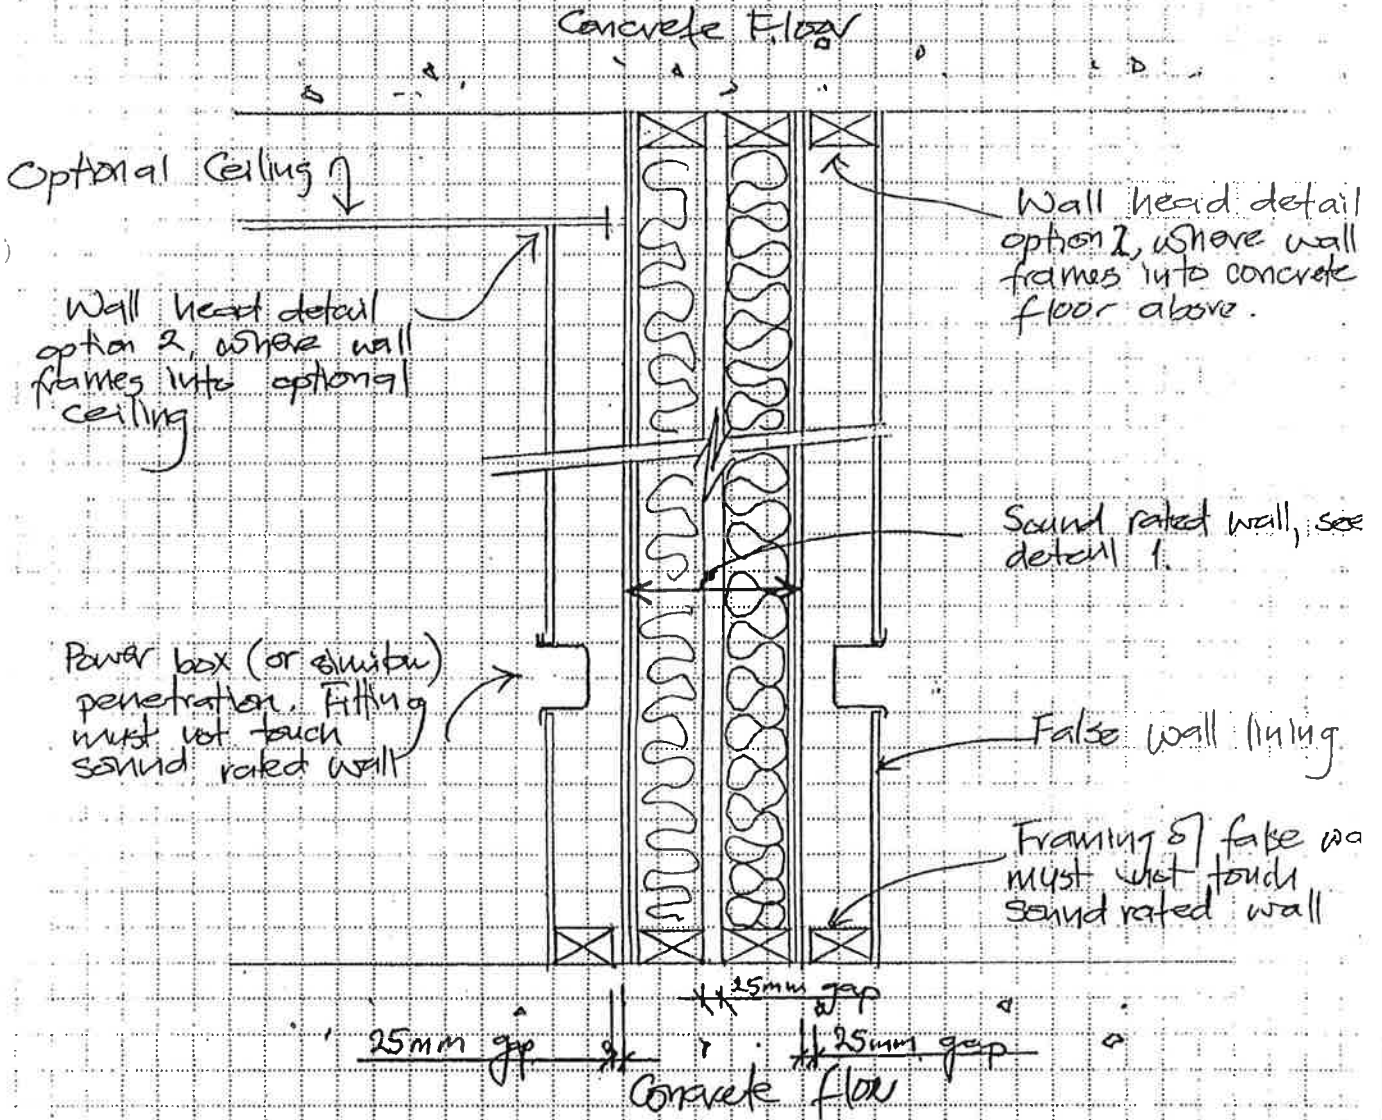 Concrete Floor
Optional Ceiling
Wall head detail
option 1, where wall
frames into concrete
floor above.
Wall head detail
option 2, where wall
frames into optional
ceiling
Sound rated wall, see
detail 1.
Power box (or similar)
penetration. Fitting
must not touch
sound rated wall
False wall lining
Framing of false wa
must not touch
sound rated wall
25mm gap
25mm gap
25mm gap
Concrete floor